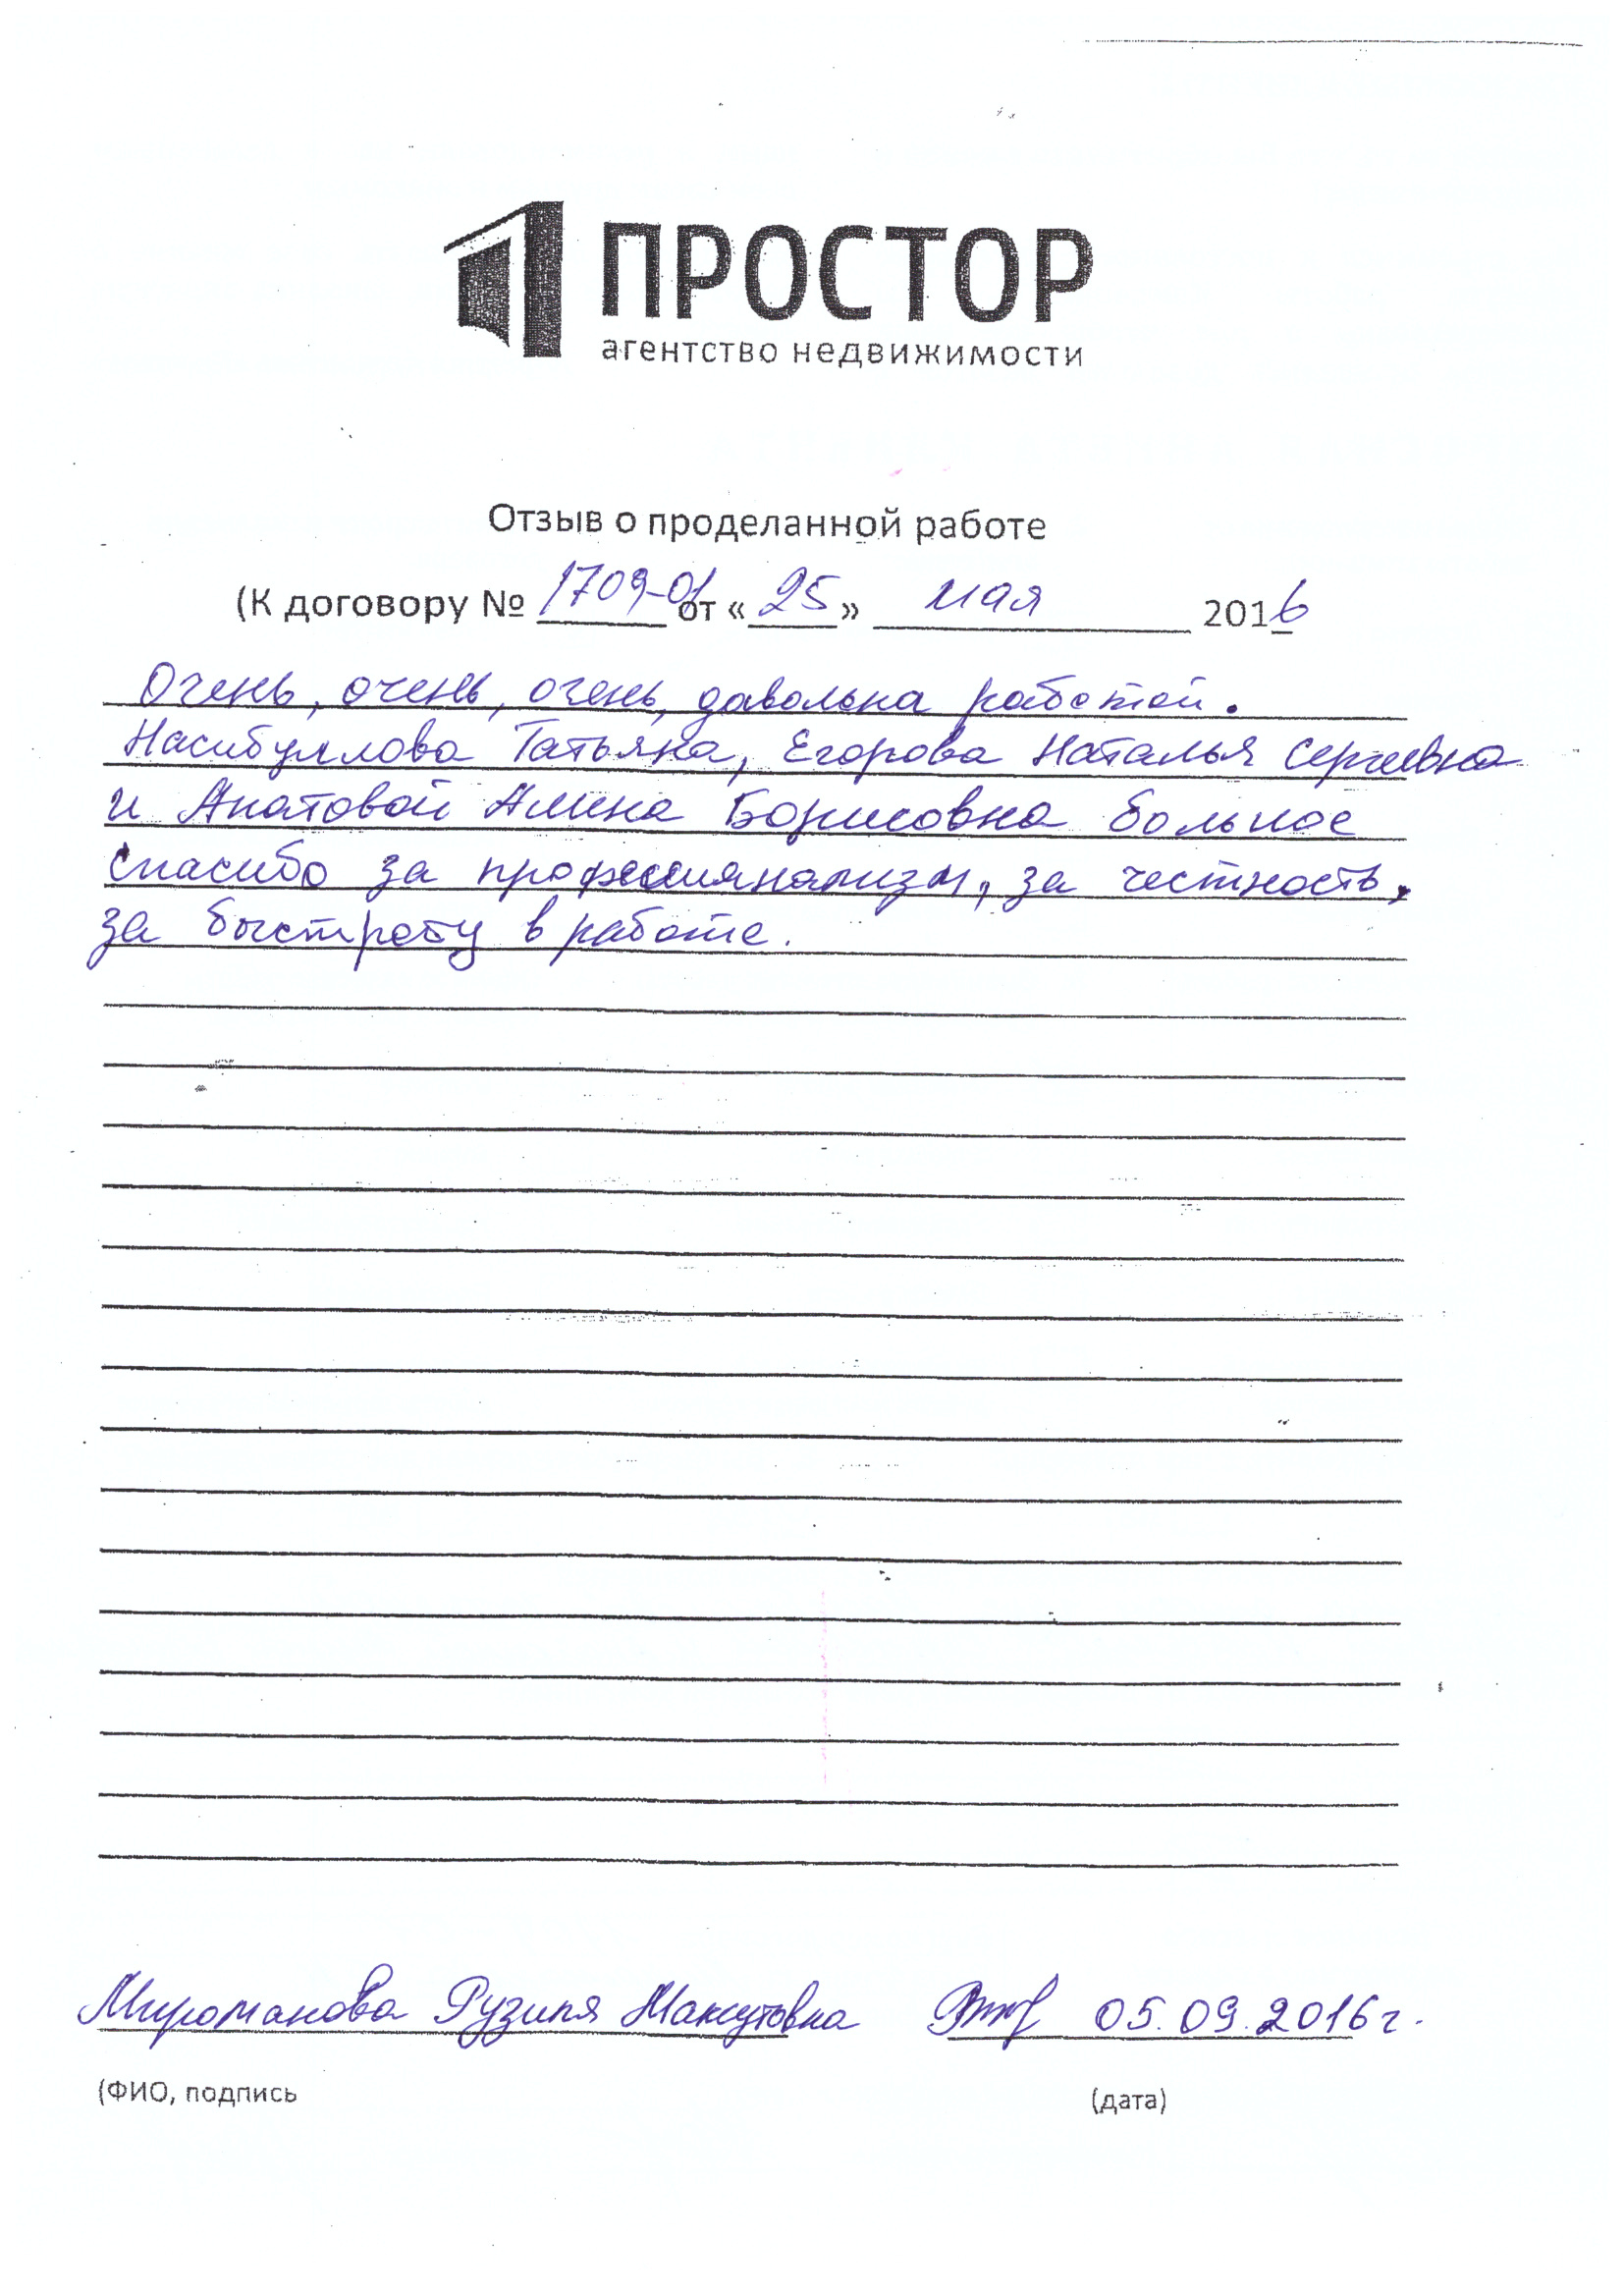 ПРОСТОР
агентство недвижимости
Отзыв о проделанной работе
(К договору № 1709-01 от «25» мая 2016
Очень, очень, очень, давольна работой.
Насибуллова Татьяна, Егорова Наталья Сергеевна
и Апатовой Алина Борисовна большое
спасибо за професиянализм, за честность,
за быстроту в работе.
Мироманова Рузиля Максутовна 05.09.2016г.
(ФИО, подпись (дата)